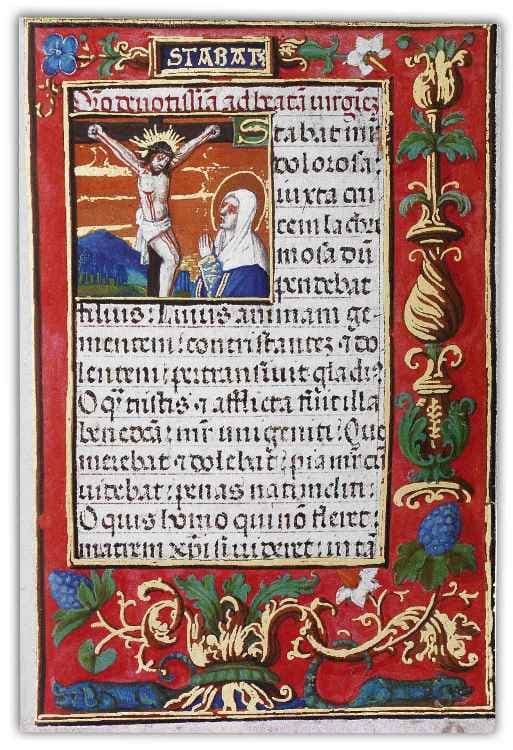 STABAT
Stabat mr̄
dolorosa:
iuxta cru
cem lachri
mosa dū
pendebat
filius: Cuius animam ge-
mentem: contristantez ⁊ do
lentem: pertransiuit gladiꝰ
O qz̄ tristis ⁊ afflicta fuit illa
benedcā: mr̄ unigeniti: Que
merebat ⁊ dolebat: pia mr̄ cū
uidebat: penas nati incliti
O quis homo qui nō fleret:
matrem xp̄i si uideret: in tā